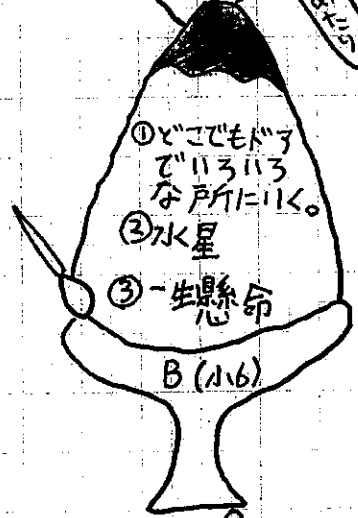 ①どこでもドア
でいろいろ
な所にいく。
③水星
③一生懸命
B(小6)